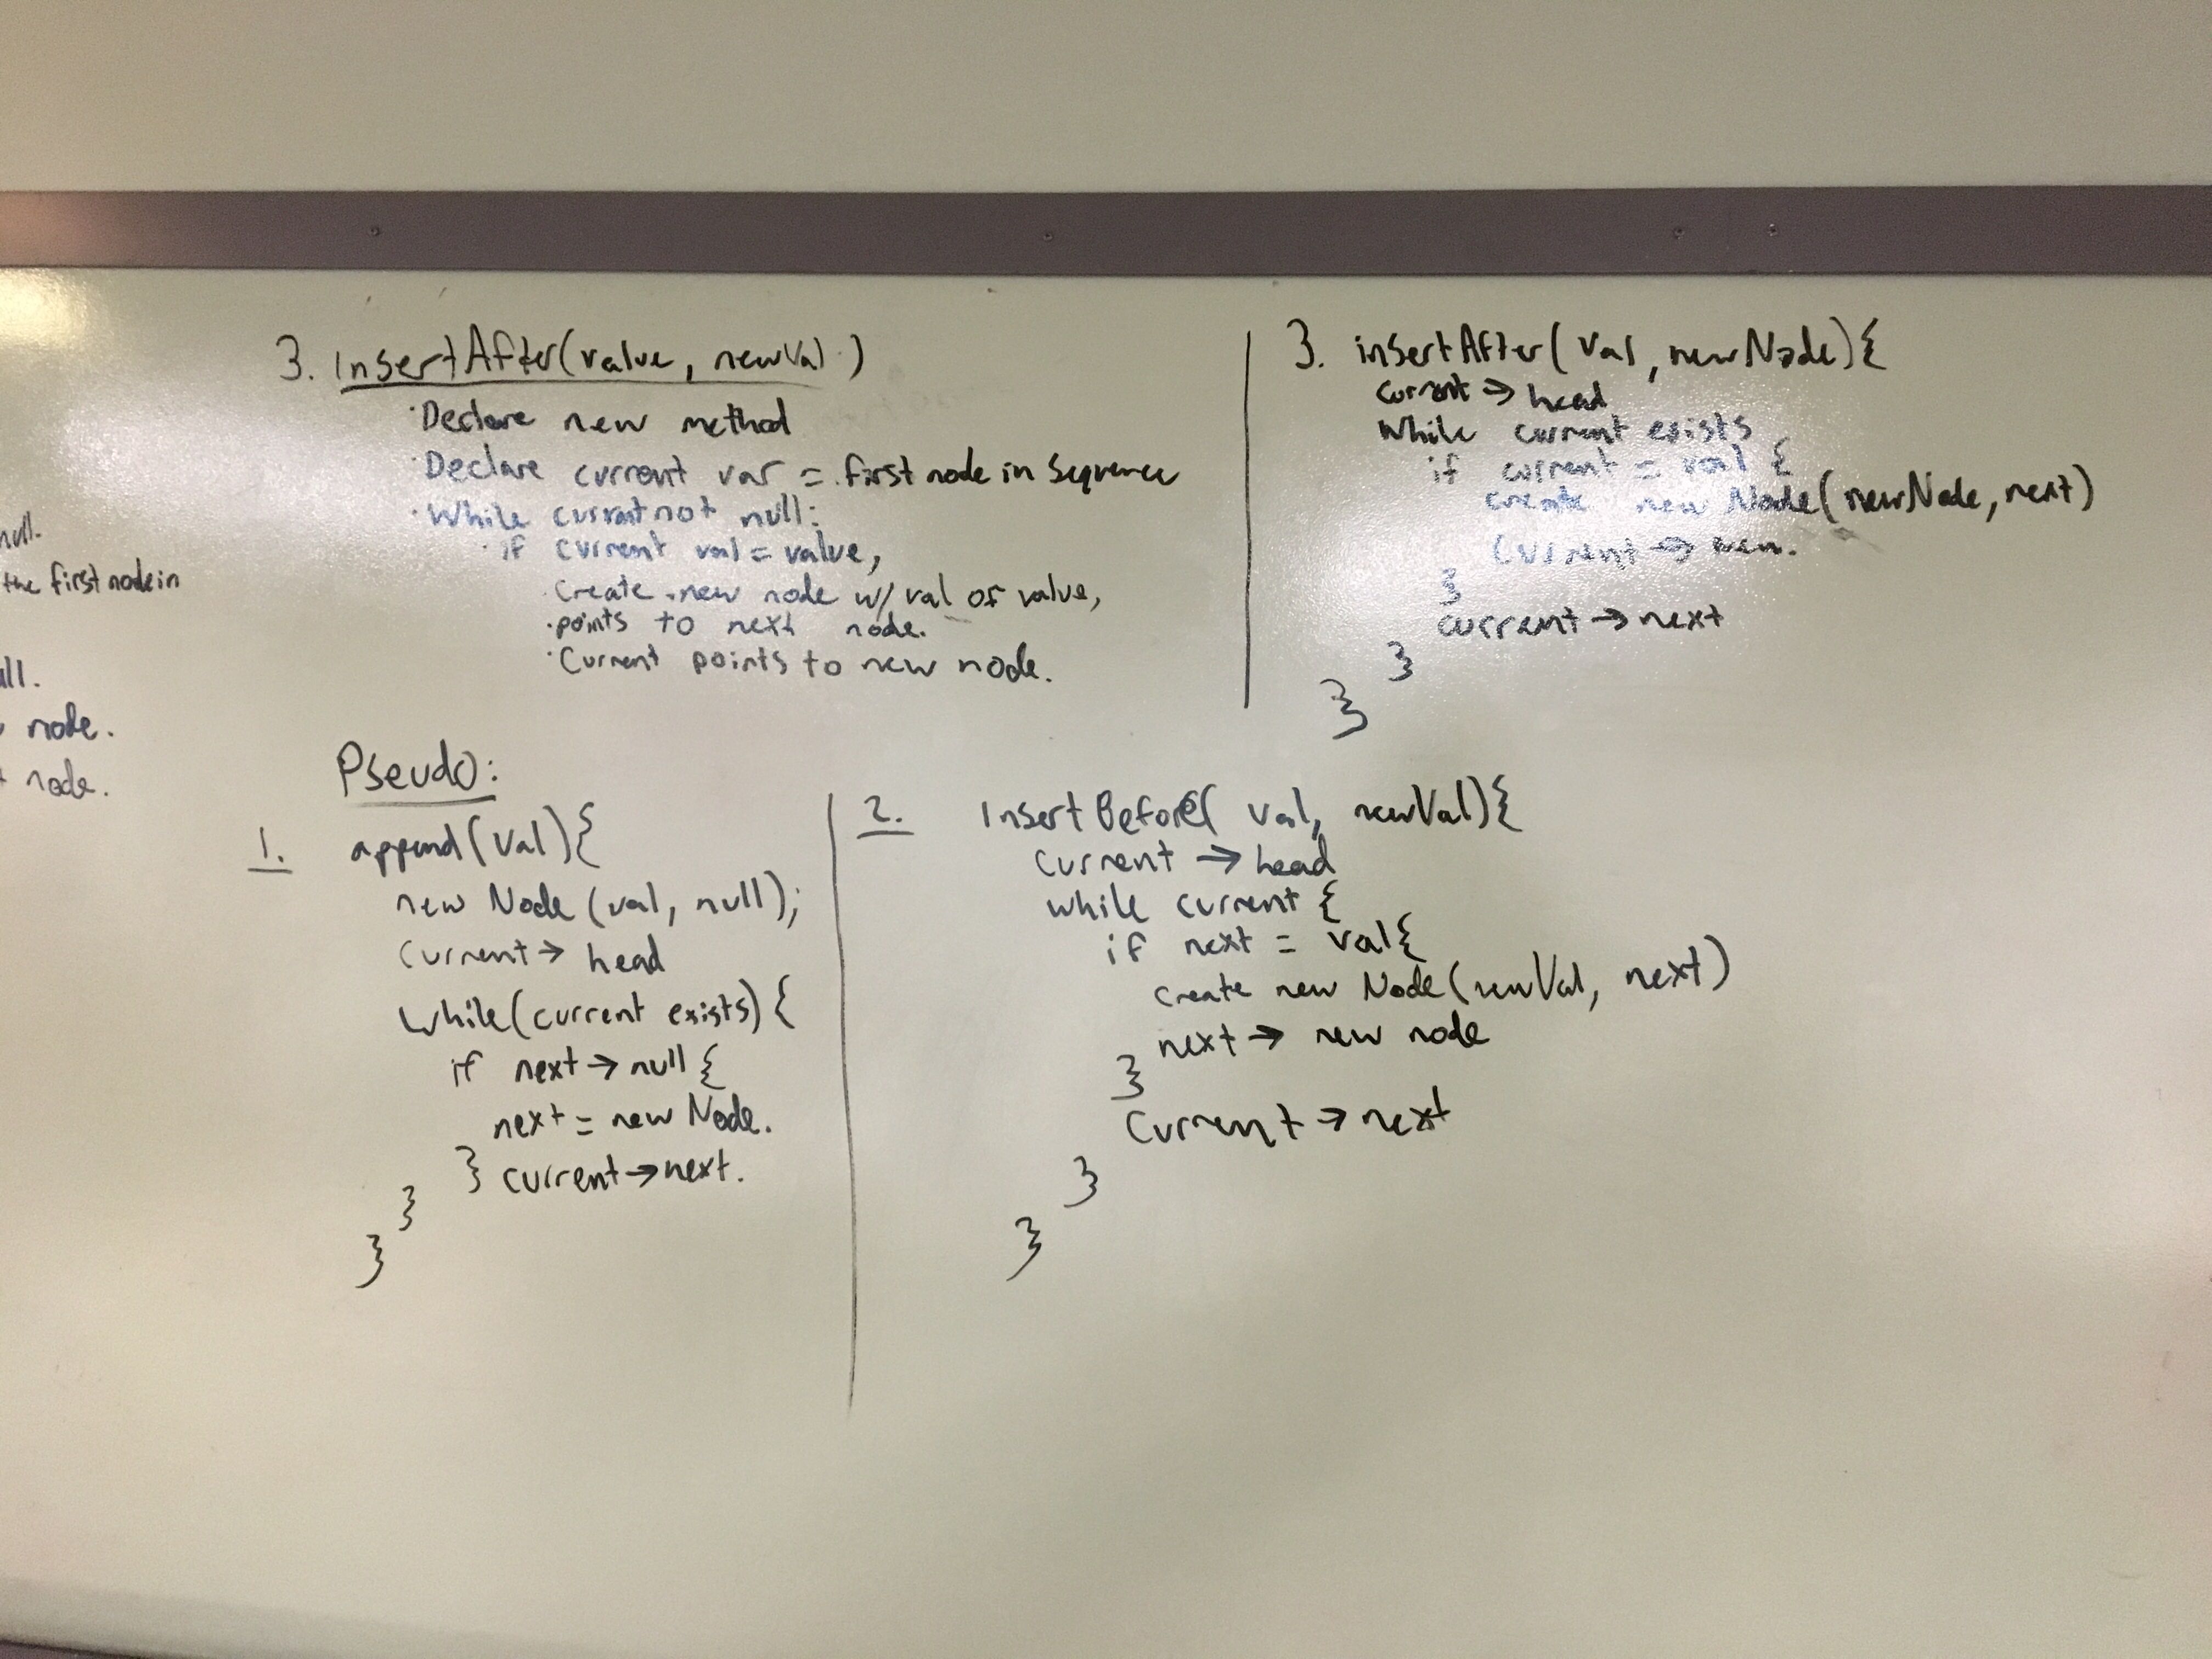 null.
the first node in
ll.
node.
node.
3. InsertAfter(value, newVal)
·Declare new method
·Declare current var = first node in sequence
·While current not null:
·if current val = value,
·Create new node w/ val of value,
·points to next node.
·Current points to new node.
3. insertAfter(val, newNode){
current → head
while current exists
if current = val {
create new Node(newNode, next)
current → new.
}
current → next
}
}
Pseudo:
1. append(val){
new Node (val, null);
current → head
while(current exists){
if next → null {
next = new Node.
} current → next.
}
}
2. InsertBefore( val, newVal){
current → head
while current {
if next = val{
create new Node(newVal, next)
next → new node
}
Current → next
}
}